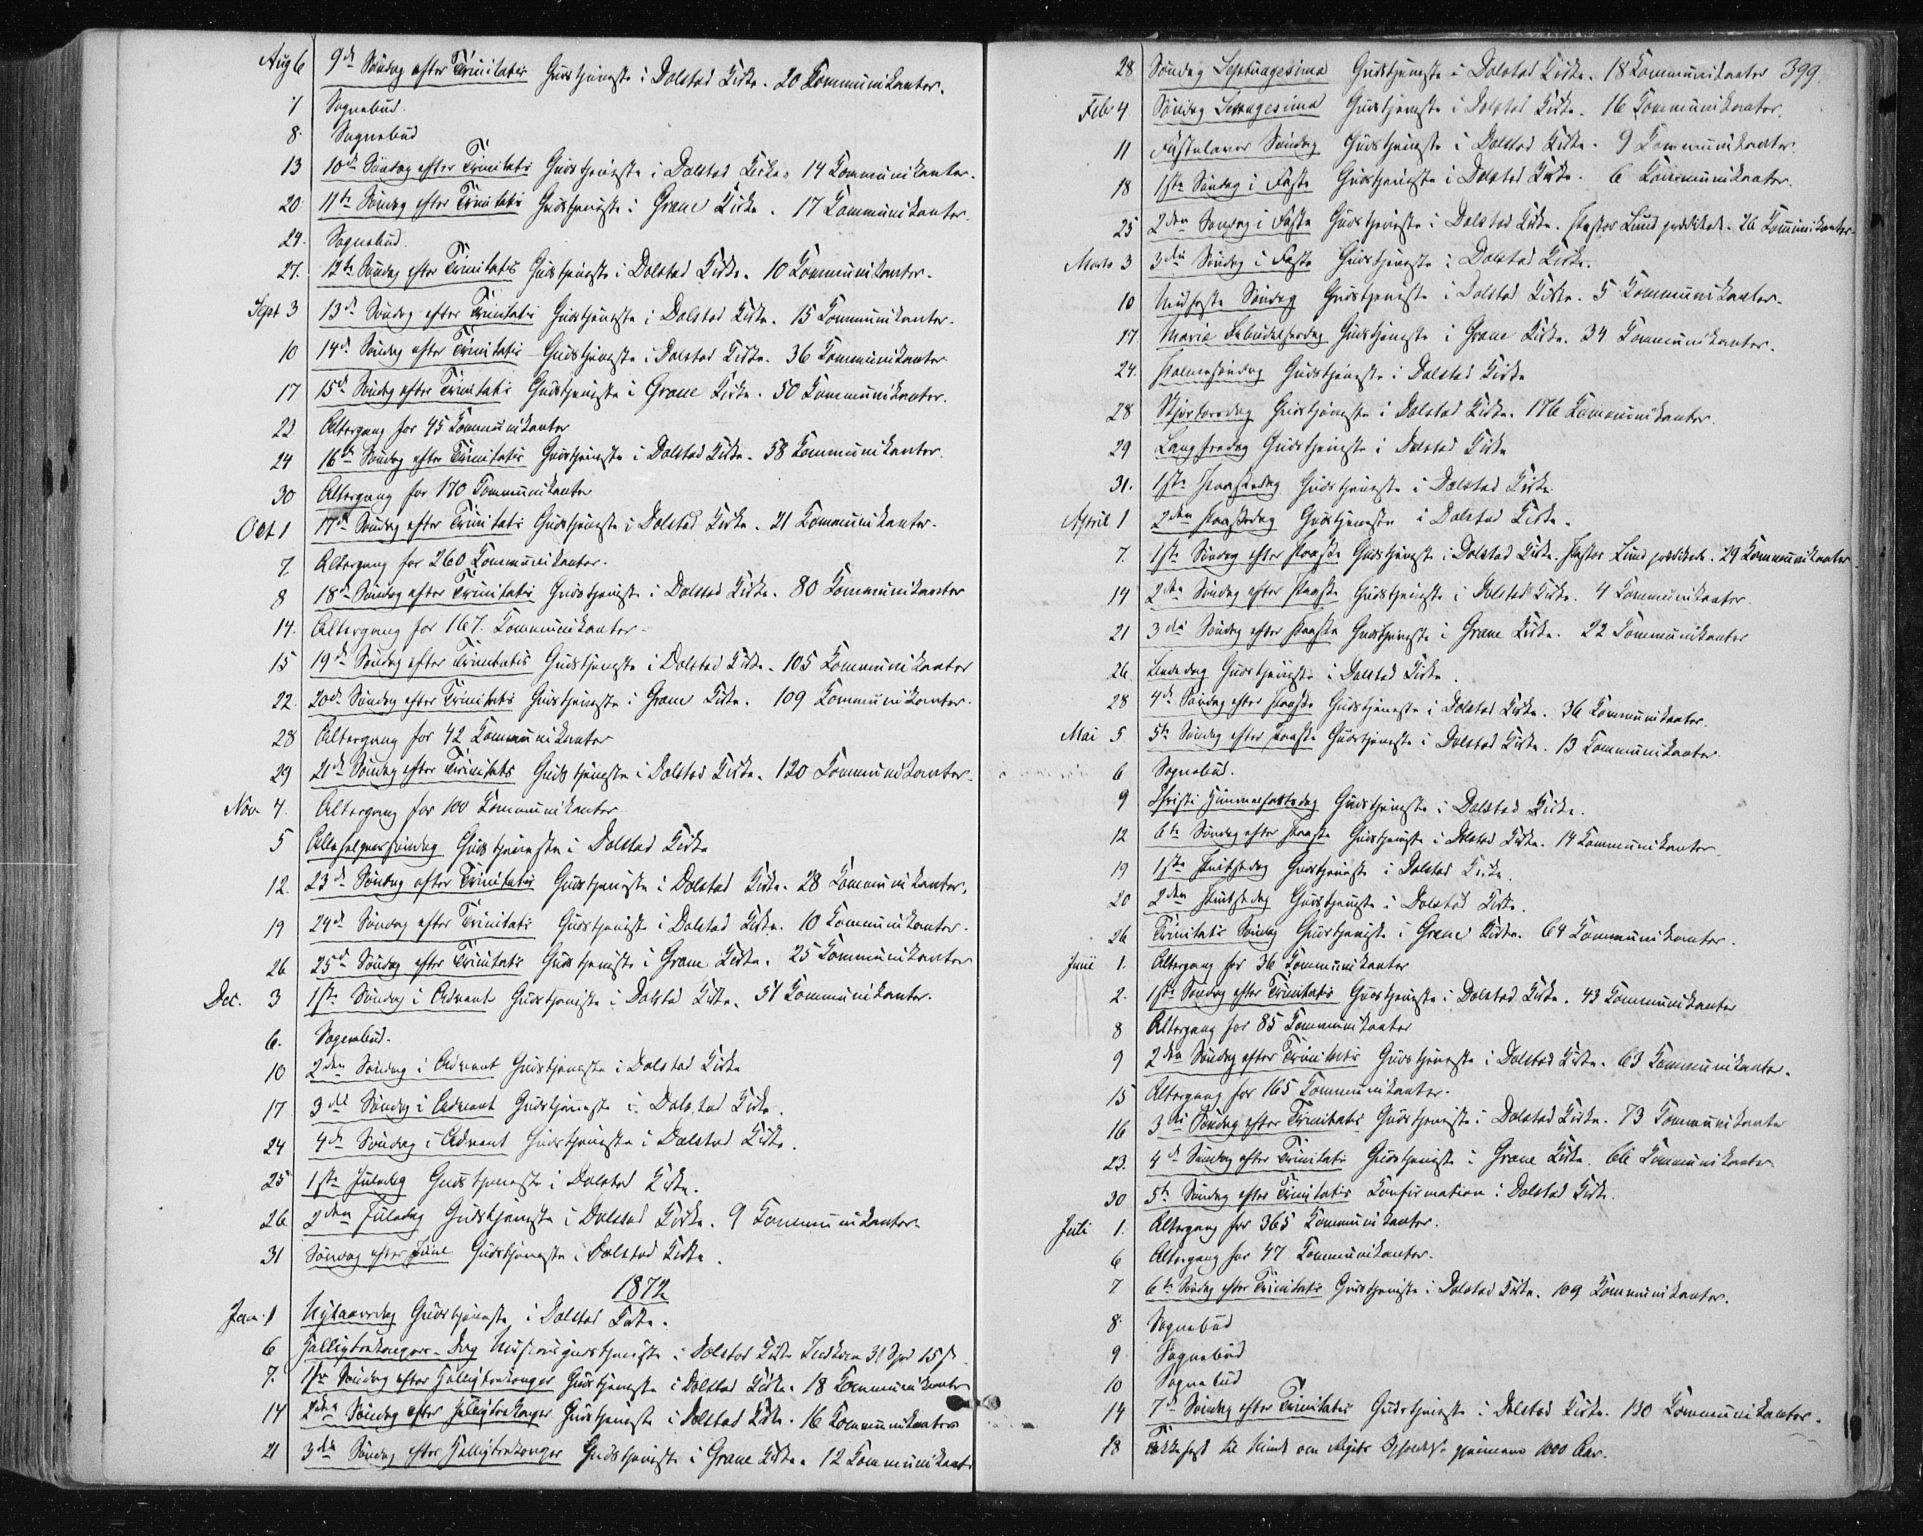 Aug 6 9de Søndag efter Trinitatis Gudstjeneste i Dolstad Kirke. 20 Kommunikanter.
7 Sognebud.
8. Sognebud
13 10de Søndag efter Trinitatis Gudstjeneste i Dolstad Kirke. 14 Kommunikanter.
20 11te Søndag efter Trinitatis Gudstjeneste i Grane Kirke. 17 Kommunikanter.
24. Sognebud.
27. 12te Søndag efter Trinitatis Gudstjeneste i Dolstad Kirke. 10 Kommunikanter.
Sept 3 13de Søndag efter Trinitatis Gudstjeneste i Dolstad Kirke. 15 Kommunikanter.
10 14de Søndag efter Trinitatis Gudstjeneste i Dolstad Kirke. 36 Kommunikanter
17 15de Søndag efter Trinitatis Gudstjeneste i Grane Kirke. 50 Kommunikanter.
22 Altergang for 45 Kommunikanter
24 16de Søndag efter Trinitatis Gudstjeneste i Dolstad Kirke. 58 Kommunikanter.
30 Altergang for 170 Kommunikanter
Oct 1 17de Søndag efter Trinitatis Gudstjeneste i Dolstad Kirke. 21 Kommunikanter.
7. Altergang for 260 Kommunikanter.
8 18de Søndag efter Trinitatis Gudstjeneste i Dolstad Kirke. 80 Kommunikanter
14. Altergang for 167. Kommunikanter.
15 19de Søndag efter Trinitatis Gudstjeneste i Dolstad Kirke. 105 Kommunikanter
22. 20de Søndag efter Trinitatis Gudstjeneste i Grane Kirke. 109 Kommunikanter.
28 Altergang for 42 Kommunikanter
29 21de Søndag efter Trinitatis Gudstjeneste i Dolstad Kirke. 120 Kommunikanter.
Nov 4. Altergang for 100 Kommunikanter
5 Allehelgenssøndag Gudstjeneste i Dolstad Kirke
12. 23de Søndag efter Trinitatis Gudstjeneste i Dolstad Kirke. 28 Kommunikanter.
19 24de Søndag efter Trinitatis Gudstjeneste i Dolstad Kirke. 10 Kommunikanter.
26 25de Søndag efter Trinitatis Gudstjeneste i Grane Kirke. 25 Kommunikanter
Dec. 3 1ste Søndag i Advent Gudstjeneste i Dolstad Kirke. 51 Kommunikanter.
6. Sognebud.
10 2den Søndag i Advent Gudstjeneste i Dolstad Kirke
17 3die Søndag i Advent Gudstjeneste i Dolstad Kirke.
24 4de Søndag i Advent Gudstjeneste i Dolstad Kirke.
25 1ste Juledag Gudstjeneste i Dolstad Kirke.
26 2den Juledag Gudstjeneste i Dolstad Kirke. 9 Kommunikanter.
31 Søndag efter Juul Gudstjeneste i Dolstad Kirke.
1872
Jan. 1 Nytaarsdag Gudstjeneste i Dolstad Kirke.
6 Helligtrekongers-Dag Missionsgudstjeneste i Dolstad Kirke
7. 1ste Søndag efter Helligtrekonger Gudstjeneste i Dolstad Kirke. 18 Kommunikanter
14 2den Søndag efter Helligtrekonger Gudstjeneste i Dolstad Kirke. 16 Kommunikanter
21 3die Søndag efter Helligtrekonger Gudstjeneste i Grane Kirke. 12 Kommunikant
28 Søndag Septuagesima Gudstjeneste i Dolstad Kirke. 18 Kommunikanter 399.
Feb 4 Søndag Sexagesima Gudstjeneste i Dolstad Kirke. 16 Kommunikanter.
11 Fastelavns Søndag Gudstjeneste i Dolstad Kirke. 9 Kommunikanter.
18 1ste Søndag i Faste Gudstjeneste i Dolstad Kirke. 6 Kommunikanter.
25 2den Søndag i Faste Gudstjeneste i Dolstad Kirke. Pastor Lund prædikede. 26 Kommunikanter.
Marts 3 3die Søndag i Faste Gudstjeneste i Dolstad Kirke.
10 Midfaste Søndag Gudstjeneste i Dolstad Kirke. 5 Kommunikanter.
17. Mariæ Bebudelsesdag Gudstjeneste i Grane Kirke. 34 Kommunikanter.
24. Palmesøndag Gudstjeneste i Dolstad Kirke
28 Skjærtorsdag Gudstjeneste i Dolstad Kirke. 176 Kommunikanter.
29 Langfredag Gudstjeneste i Dolstad Kirke
31. 1ste Paaskedag Gudstjeneste i Dolstad Kirke
April 1 2den Paaskedag Gudstjeneste i Dolstad Kirke.
7. 1ste Søndag efter Paaske Gudstjeneste i Dolstad Kirke. Pastor Lund prædikede. 29 Kommunikanter
14 2den Søndag efter Paaske Gudstjeneste i Dolstad Kirke. 4 Kommunikanter.
21 3die Søndag efter Paaske Gudstjeneste i Grane Kirke. 22 Kommunikanter
26 Bededag Gudstjeneste i Dolstad Kirke.
28 4de Søndag efter Paaske Gudstjeneste i Dolstad Kirke. 36 Kommunikanter.
Mai 5. 5te Søndag efter Paaske Gudstjeneste i Dolstad Kirke. 13 Kommunikanter
6 Sognebud.
9 Christi Himmelfartsdag Gudstjeneste i Dolstad Kirke.
12 6te Søndag efter Paaske Gudstjeneste i Dolstad Kirke. 14 Kommunikanter.
19 1ste Pintsedag Gudstjeneste i Dolstad Kirke.
20 2den Pintsedag Gudstjeneste i Dolstad Kirke.
26 Trinitatis Søndag Gudstjeneste i Grane Kirke. 64 Kommunikanter.
Junii 1. Altergang for 36 Kommunikanter
2. 1ste Søndag efter Trinitatis Gudstjeneste i Dolstad Kirke. 43 Kommunikanter
8 Altergang for 85 Kommunikanter
9 2den Søndag efter Trinitatis Gudstjeneste i Dolstad Kirke. 63 Kommunikanter.
15 Altergang for 165 Kommunikanter.
16 3die Søndag efter Trinitatis Gudstjeneste i Dolstad Kirke. 73 Kommunikanter
23. 4de Søndag efter Trinitatis Gudstjeneste i Grane Kirke. 66 Kommunikanter.
30 5te Søndag efter Trinitatis Konfirmation i Dolstad Kirke.
Juli 1. Altergang for 365 Kommunikanter.
6 Altergang for 47 Kommunikanter.
7 6te Søndag efter Trinitatis Gudstjeneste i Dolstad Kirke. 109 Kommunikanter.
8. Sognebud
9. Sognebud
10 Sognebud
14 7de Søndag efter Trinitatis Gudstjeneste i Dolstad Kirke. 130 Kommunikanter.
18 Takkefest til Minde om Rigets gjennem 1000 Aar.